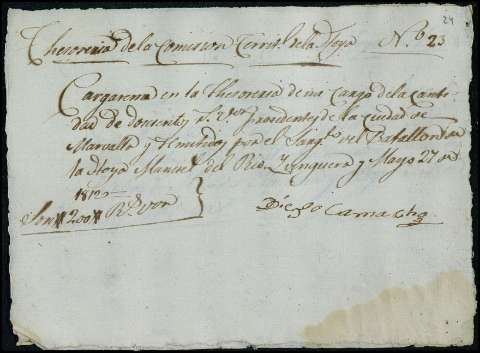 24
Thesoreria de la Comision Territ.l de la Hoya N.o 23
Cargareme en la Thesoreria de mi Cargo de la Canti-
dad de docientos r.s v.on procedentes de la ciudad de
Marvella y remitidos por el Sarg.to del Batallon de
la Hoya Manuel del Rio, Yunquera y Mayo 27 de
1812
Son #200# R.s von
Diego Camacho